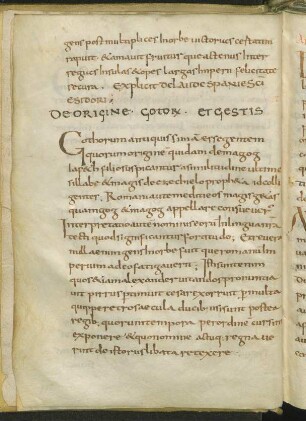 gens post multiplices in orbe uictorias certatim
rapuit & amauit fruiturque actenus inter
regias infulas & opes largas imperii felicitate
secura. Explicit de laude spaniae sci
esidori
DE ORIGINE GOTOR. ET GESTIS
Gothorum antiquissimam esse gentem
quorum origine quidam de magog
iapeth filio suspicantur a similitudine ultime
sillabe & magis de ezechielo propheta id colli
gentes. & magog appellare consueuer
Interpretatio autem nominis eorum in lingua nra
tecti quod significatur fortitudo. Et re uer
nulla enim gens in orbe fuit que romanum im
perium adeo fatigauerit. Isti sunt enim
quos & iam alexander uitandos pronuntia
uit pirrus pertimuit cesar exorruit. p multa
quippe retro secula ducibus usi sunt postea
regib; quorum tempora per ordine cursim
exponere & quo nomine actuq; regnaue
rint de istoriis libata retexere